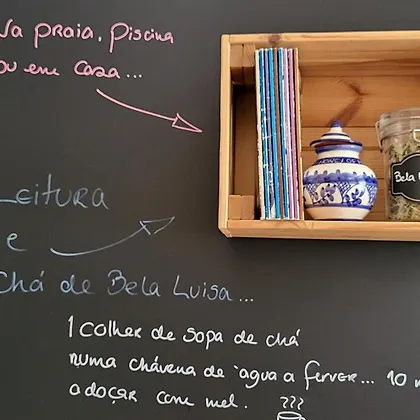 Na praia, piscina
ou em casa...
Leitura
e
Chá de Bela Luisa...
1 colher de sopa de chá
numa chávena de água a ferver... 10
adoçar com mel. ???
Bela